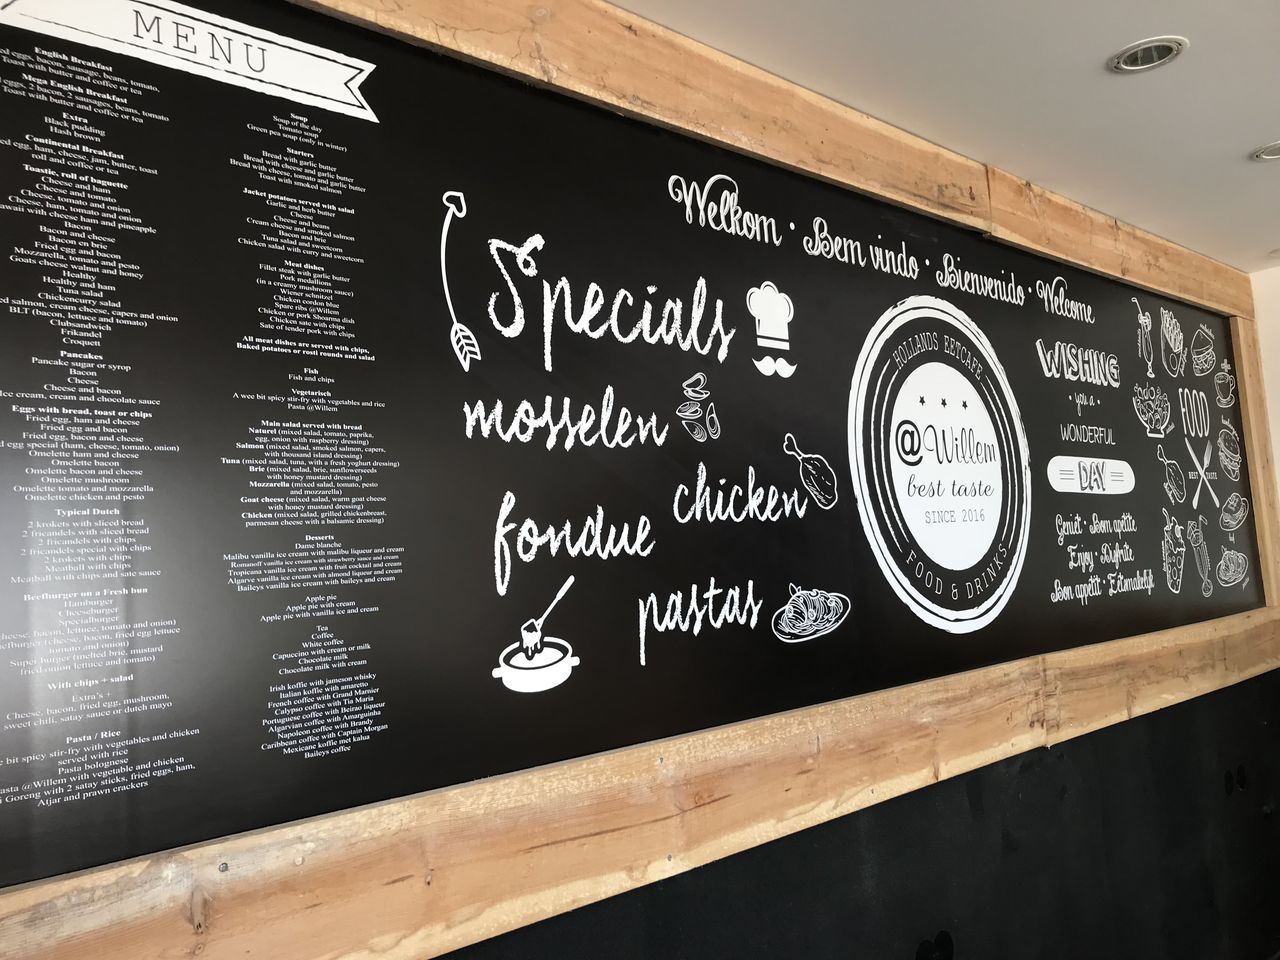 MENU
English Breakfast
eggs, bacon, sausage, beans, tomato,
Toast with butter and coffee or tea
Mega English Breakfast
eggs, 2 bacon, 2 sausages, beans, tomato
Toast with butter and coffee or tea
Extra
Black pudding
Hash brown
Continental Breakfast
egg, ham, cheese, jam, butter, toast
roll and coffee or tea
Toastie, roll of baguette
Cheese and ham
Cheese and tomato
Cheese, tomato and onion
Cheese, ham, tomato and onion
with cheese ham and pineapple
Bacon
Bacon and cheese
Bacon en brie
Fried egg and bacon
Mozzarella, tomato and pesto
Goats cheese walnut and honey
Healthy
Healthy and ham
Tuna salad
Chickencurry salad
salmon, cream cheese, capers and onion
BLT (bacon, lettuce and tomato)
Clubsandwich
Frikandel
Croquett
Pancakes
Pancake sugar or syrop
Bacon
Cheese
Cheese and bacon
Ice cream, cream and chocolate sauce
Eggs with bread, toast or chips
Fried egg, ham and cheese
Fried egg and bacon
Fried egg, bacon and cheese
egg special (ham, cheese, tomato, onion)
Omelette ham and cheese
Omelette bacon
Omelette bacon and cheese
Omelette mushroom
Omelette tomato and onion
Omelette chicken and pesto
Typical Dutch
2 krokets with sliced bread
2 fricandels with sliced bread
2 fricandels special with chips
2 krokets with chips
Meatball with chips
Meatball with chips and sate sauce
Beefburger on a Fresh bun
Hamburger
Cheeseburger
Specialburger
(cheese, bacon, lettuce, tomato and onion)
(cheese, bacon, fried egg lettuce
tomato and onion)
Super burger (melted brie, mustard
fried onion lettuce and tomato)
With chips + salad
Extra's +
Cheese, bacon, fried egg, mushroom,
sweet chili, satay sauce or dutch mayo
Pasta / Rice
bit spicy stir-fry with vegetables and chicken
served with rice
Pasta bolognese
Pasta @Willem with vegetable and chicken
Goreng with 2 satay sticks, fried eggs, ham,
Atjar and prawn crackers
Soup
Soup of the day
Tomato soup
Green pea soup (only in winter)
Starters
Bread with garlic butter
Bread with cheese and garlic butter
Bread with cheese, tomato and garlic butter
Toast with smoked salmon
Jacket potatoes served with salad
Garlic and herb butter
Cheese
Cheese and beans
Cream cheese and smoked salmon
Bacon and brie
Tuna salad and sweetcorn
Chicken salad with curry and sweetcorn
Meat dishes
Fillet steak with garlic butter
Pork medallions
(in a creamy mushroom sauce)
Wiener schnitzel
Chicken cordon blue
Spare ribs @Willem
Chicken or pork Shoarma dish
Chicken sate with chips
Sate of tender pork with chips
All meat dishes are served with chips,
Baked potatoes or rosti rounds and salad
Fish
Fish and chips
Vegetarisch
A wee bit spicy stir-fry with vegetables and rice
Pasta @Willem
Main salad served with bread
Naturel (mixed salad, tomato, paprika,
egg, onion with raspberry dressing)
Salmon (mixed salad, smoked salmon, capers,
with thousand island dressing)
Tuna (mixed salad, tuna, with a fresh yoghurt dressing)
Brie (mixed salad, brie, sunflowerseeds
with honey mustard dressing)
Mozzarella (mixed salad, tomato, pesto
and mozzarella)
Goat cheese (mixed salad, warm goat cheese
with honey mustard dressing)
Chicken (mixed salad, grilled chickenbreast,
parmesan cheese with a balsamic dressing)
Desserts
Dame blanche
Malibu vanilla ice cream with malibu liqueur and cream
Romanoff vanilla ice cream with strawberry sauce and cream
Tropicana vanilla ice cream with fruit cocktail and cream
Algarve vanilla ice cream with almond liqueur and cream
Baileys vanilla ice cream with baileys and cream
Apple pie
Apple pie with cream
Apple pie with vanilla ice and cream
Tea
Coffee
White coffee
Capuccino with cream or milk
Chocolate milk
Chocolate milk with cream
Irish koffie with jameson whisky
Italian koffie with amaretto
French coffee with Grand Marnier
Calypso coffee with Tia Maria
Portuguese coffee with Beirao liqueur
Algarvian coffee with Amarguinha
Napoleon coffee with Brandy
Caribbean coffee with Captain Morgan
Mexicane koffie met kalua
Baileys coffee
Specials
mosselen
chicken
fondue
pastas
Welkom · Bem vindo · Bienvenido · Welcome
HOLLANDS EETCAFE
@Willem
best taste
SINCE 2016
FOOD & DRINKS
WISHING
you a
WONDERFUL
DAY
Geniet · Bom apetite
Enjoy · Disfrite
Bon appetit · Eetsmakelijk
FOOD
BEST TASTE